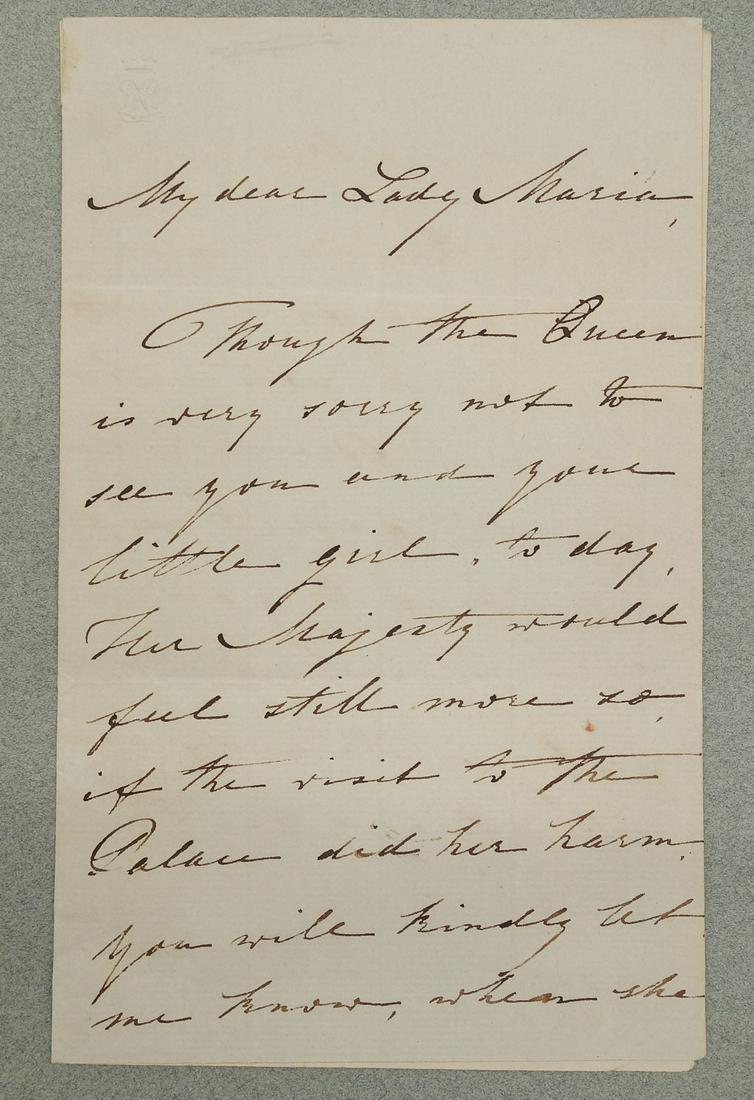 My dear Lady Maria,
Though the Queen
is very sorry not to
see you and your
little girl, to day,
Her Majesty would
feel still more so,
if the visit to the
Palace did her harm.
you will kindly let
me know, when she